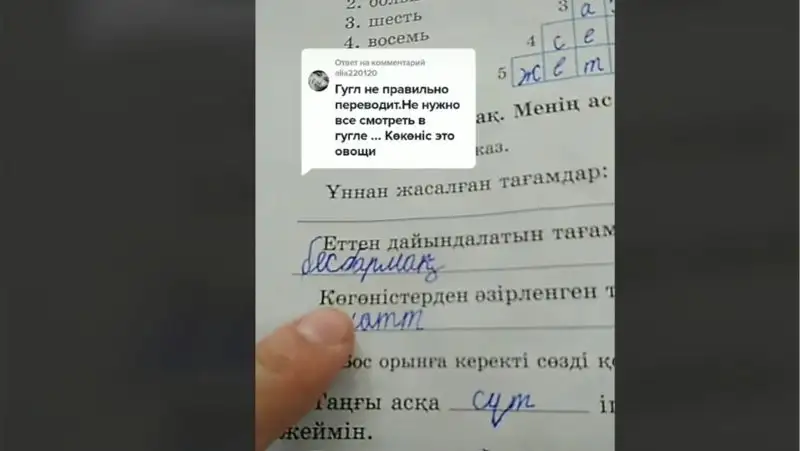 3. шесть
4. восемь
3 а
4 с е
5 ж е т
Ответ на комментарий
alia220120
Гугл не правильно
переводит.Не нужно
все смотреть в
гугле ... Көкөніс это
овощи
ақ. Менің ас
каз.
Ұннан жасалған тағамдар:
Еттен дайындалатын тағам
бесбармақ
Көгөністерден әзірленген т
Бос орынға керекті сөзді қ
Таңғы асқа сүт і
жеймін.